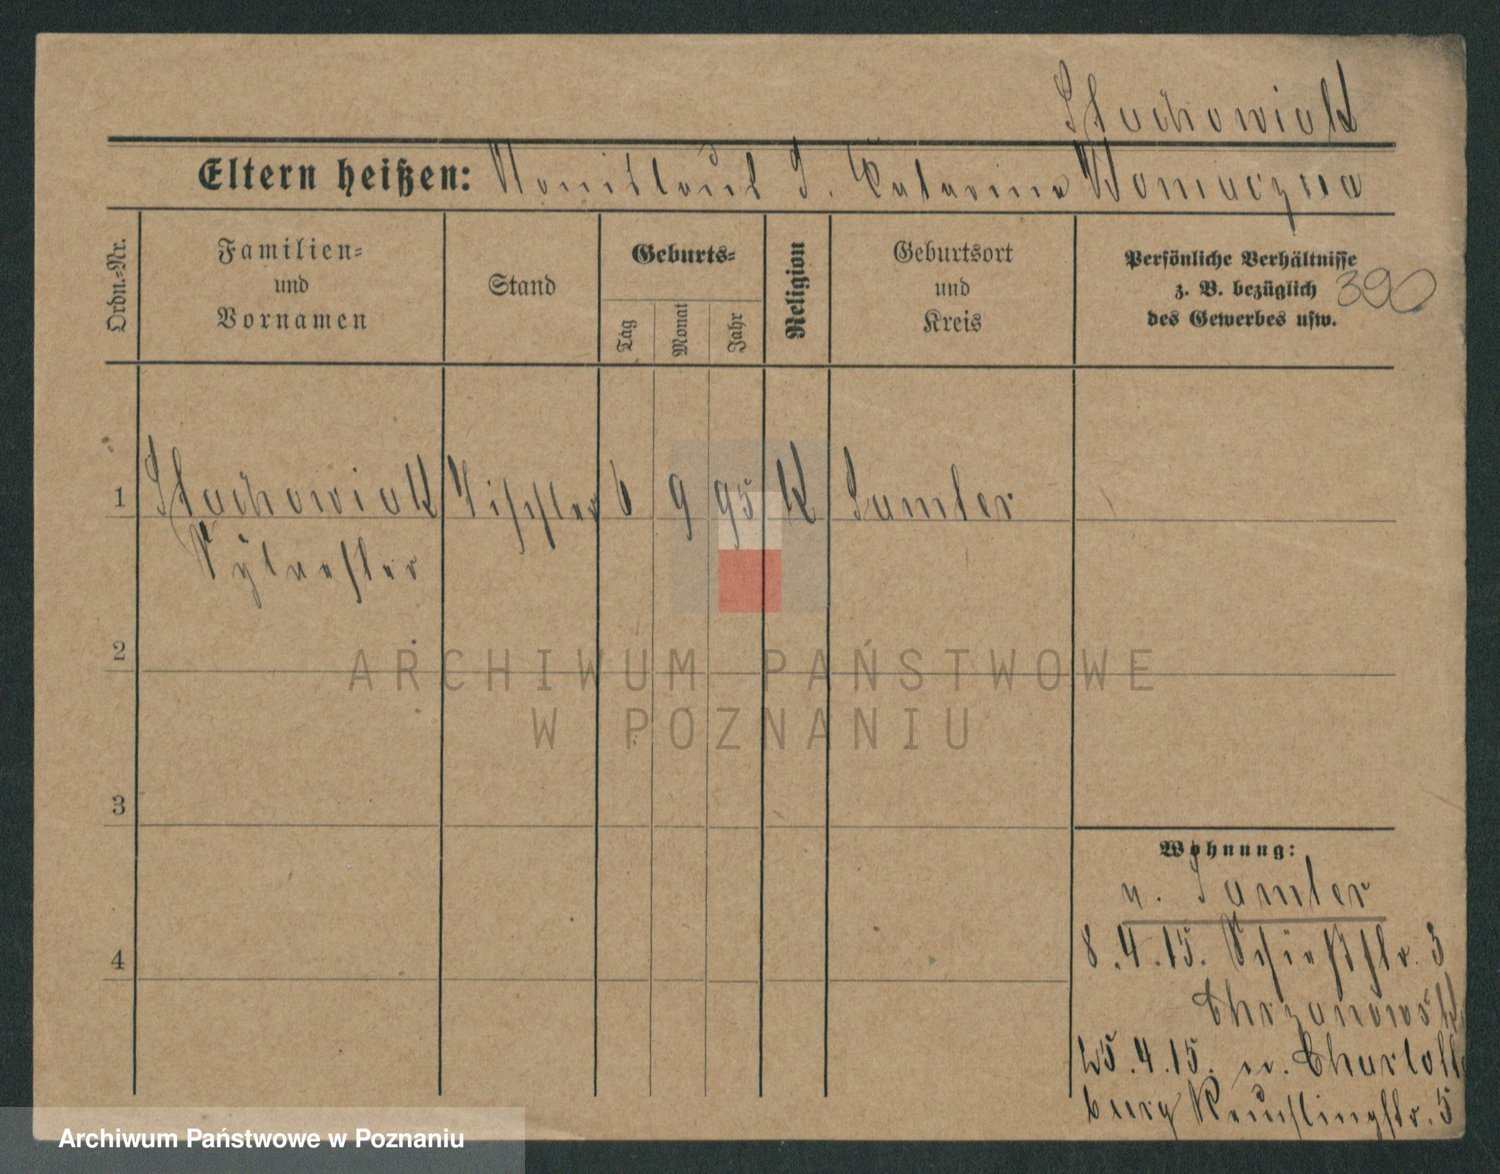 Stachowiak
Eltern heißen: Stanislaus u. Catarina
Ordn.-Nr.
Familien-
und
Vornamen
Stand
Geburts-
Tag
Monat
Jahr
Religion
Geburtsort
und
Kreis
Persönliche Verhältnisse
z. B. bezüglich
des Gewerbes usw.
390
1 Stachowiak Tischler 6 9 95 K Samter
Sylvester
2
3
4
Wohnung:
v. Samter
8.4.15. Schießstr. 3
Chrzanowski
25.4.15. n. Charlotten
burg 5
ARCHIWUM PAŃSTWOWE
W POZNANIU
Archiwum Państwowe w Poznaniu